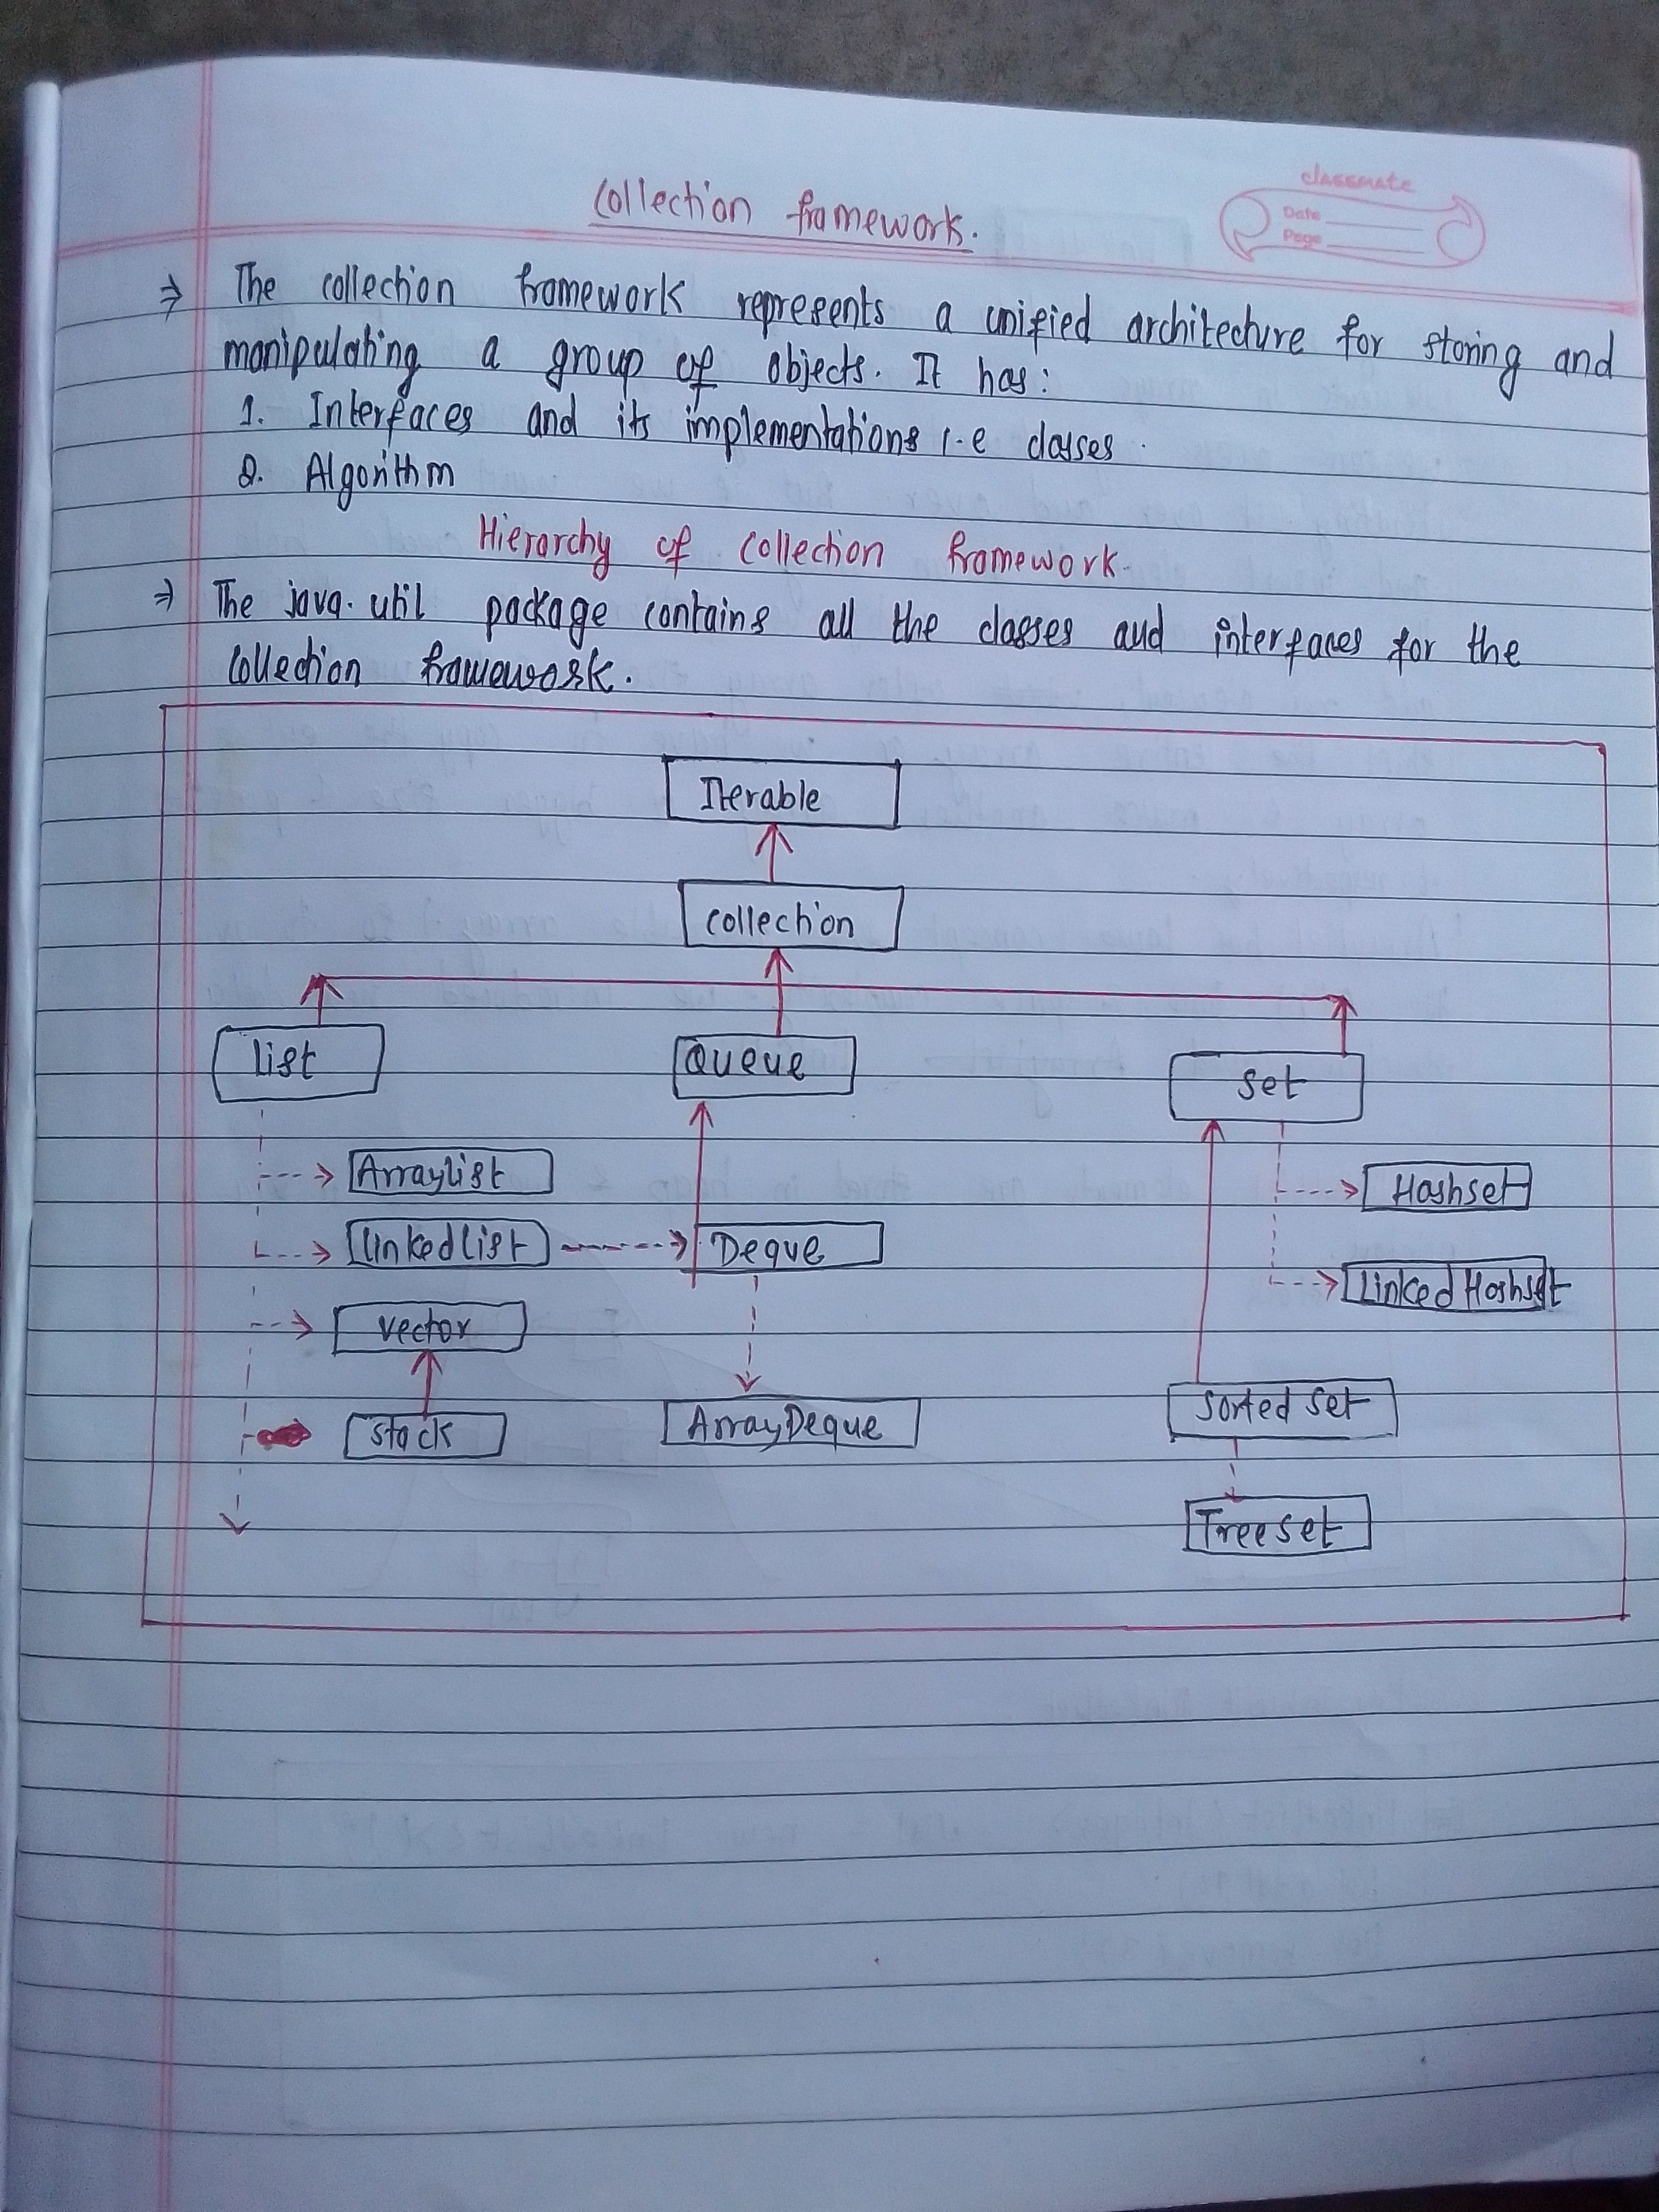 classmate
Date
Page
Collection framework.
⇒ The collection framework represents a unified architecture for storing and
manipulating a group of objects. It has:
1. Interfaces and its implementations i.e classes.
2. Algorithm
Hierarchy of collection framework.
⇒ The java.util package contains all the classes and interfaces for the
collection framework.
Iterable
collection
list Queue set
Arraylist Hashset
linkedlist Deque
Linked Hashset
vector
stack ArrayDeque sorted set
Treeset